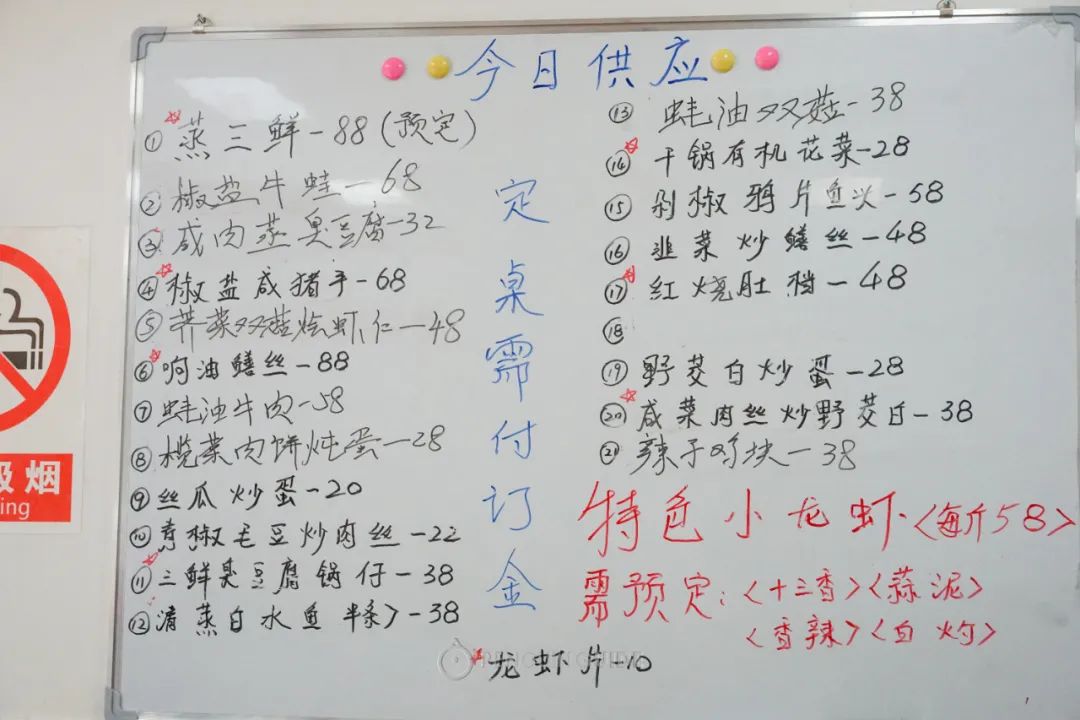 今日供应
①蒸三鲜-88(预定)
②椒盐牛蛙-68
③咸肉蒸臭豆腐-32
④椒盐咸猪手-68
⑤荠菜双菇烩虾仁-48
⑥响油鳝丝-88
⑦蚝油牛肉-58
⑧榄菜肉饼炖蛋-28
⑨丝瓜炒蛋-20
⑩青椒毛豆炒肉丝-22
⑪三鲜臭豆腐锅仔-38
⑫清蒸白水鱼半条>-38
定桌需付订金
⑬蚝油双菇-38
⑭干锅有机花菜-28
⑮剁椒鸦片鱼头-58
⑯韭菜炒鳝丝-48
⑰红烧肚档-48
⑱
⑲野茭白炒蛋-28
⑳咸菜肉丝炒野茭白-38
㉑辣子鸡块-38
特色小龙虾<每斤58>
需预定:<十三香><蒜泥>
<香辣><白灼>
龙虾片-10
吸烟
ing